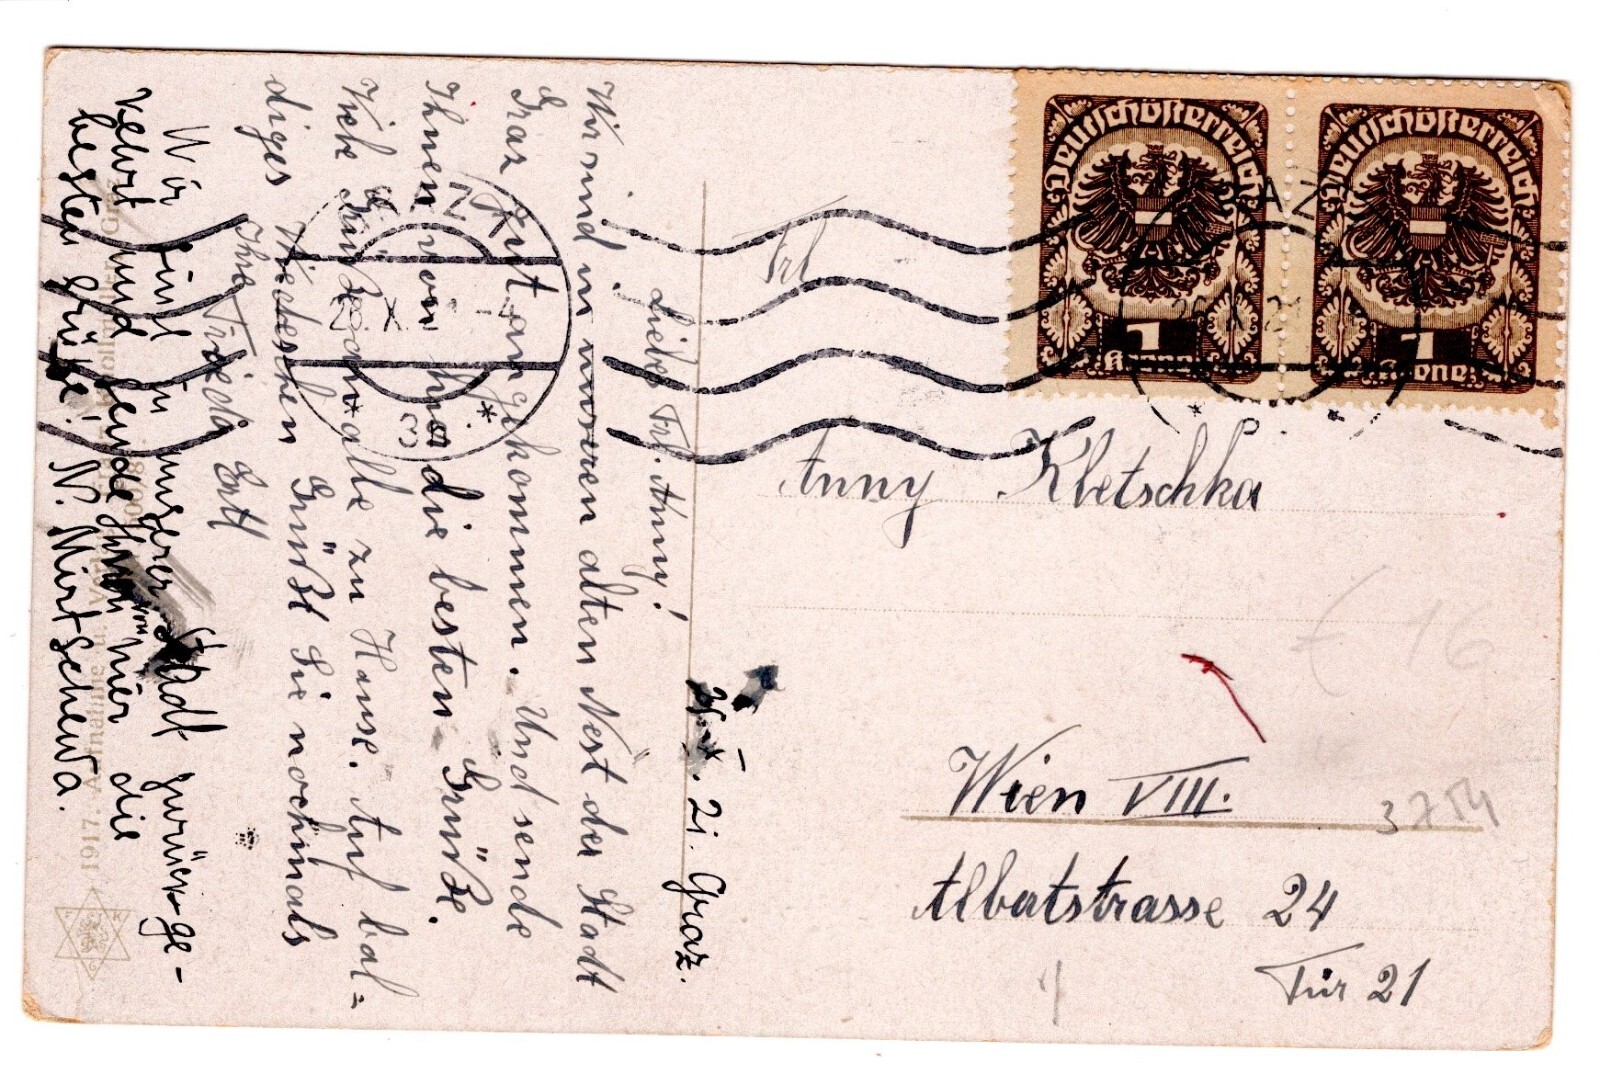 Deutschösterreich
1
Krone
Deutschösterreich
1
Krone
GRAZ
Frl
Anny Kletschka
Wien VIII.
Albertstrasse 24
Tür 21
€ 16
3754
21. Graz.
Liebes Frl. Anny!
Wir sind in unseren alten Nest der Stadt
Graz gut angekommen. Und sende
Ihnen von hier die besten Grüße.
Viele Grüße an alle zu Hause. Auf bal=
diges Wiedersehen Grüßt Sie nochmals
Ihre Frieda Ertl
Wir sind in unserer Stadt zurückge-
kehrt und sende Ihnen von hier die
besten Grüße! N. Mirtschewa.
1917. Aufnahme u. Verlag